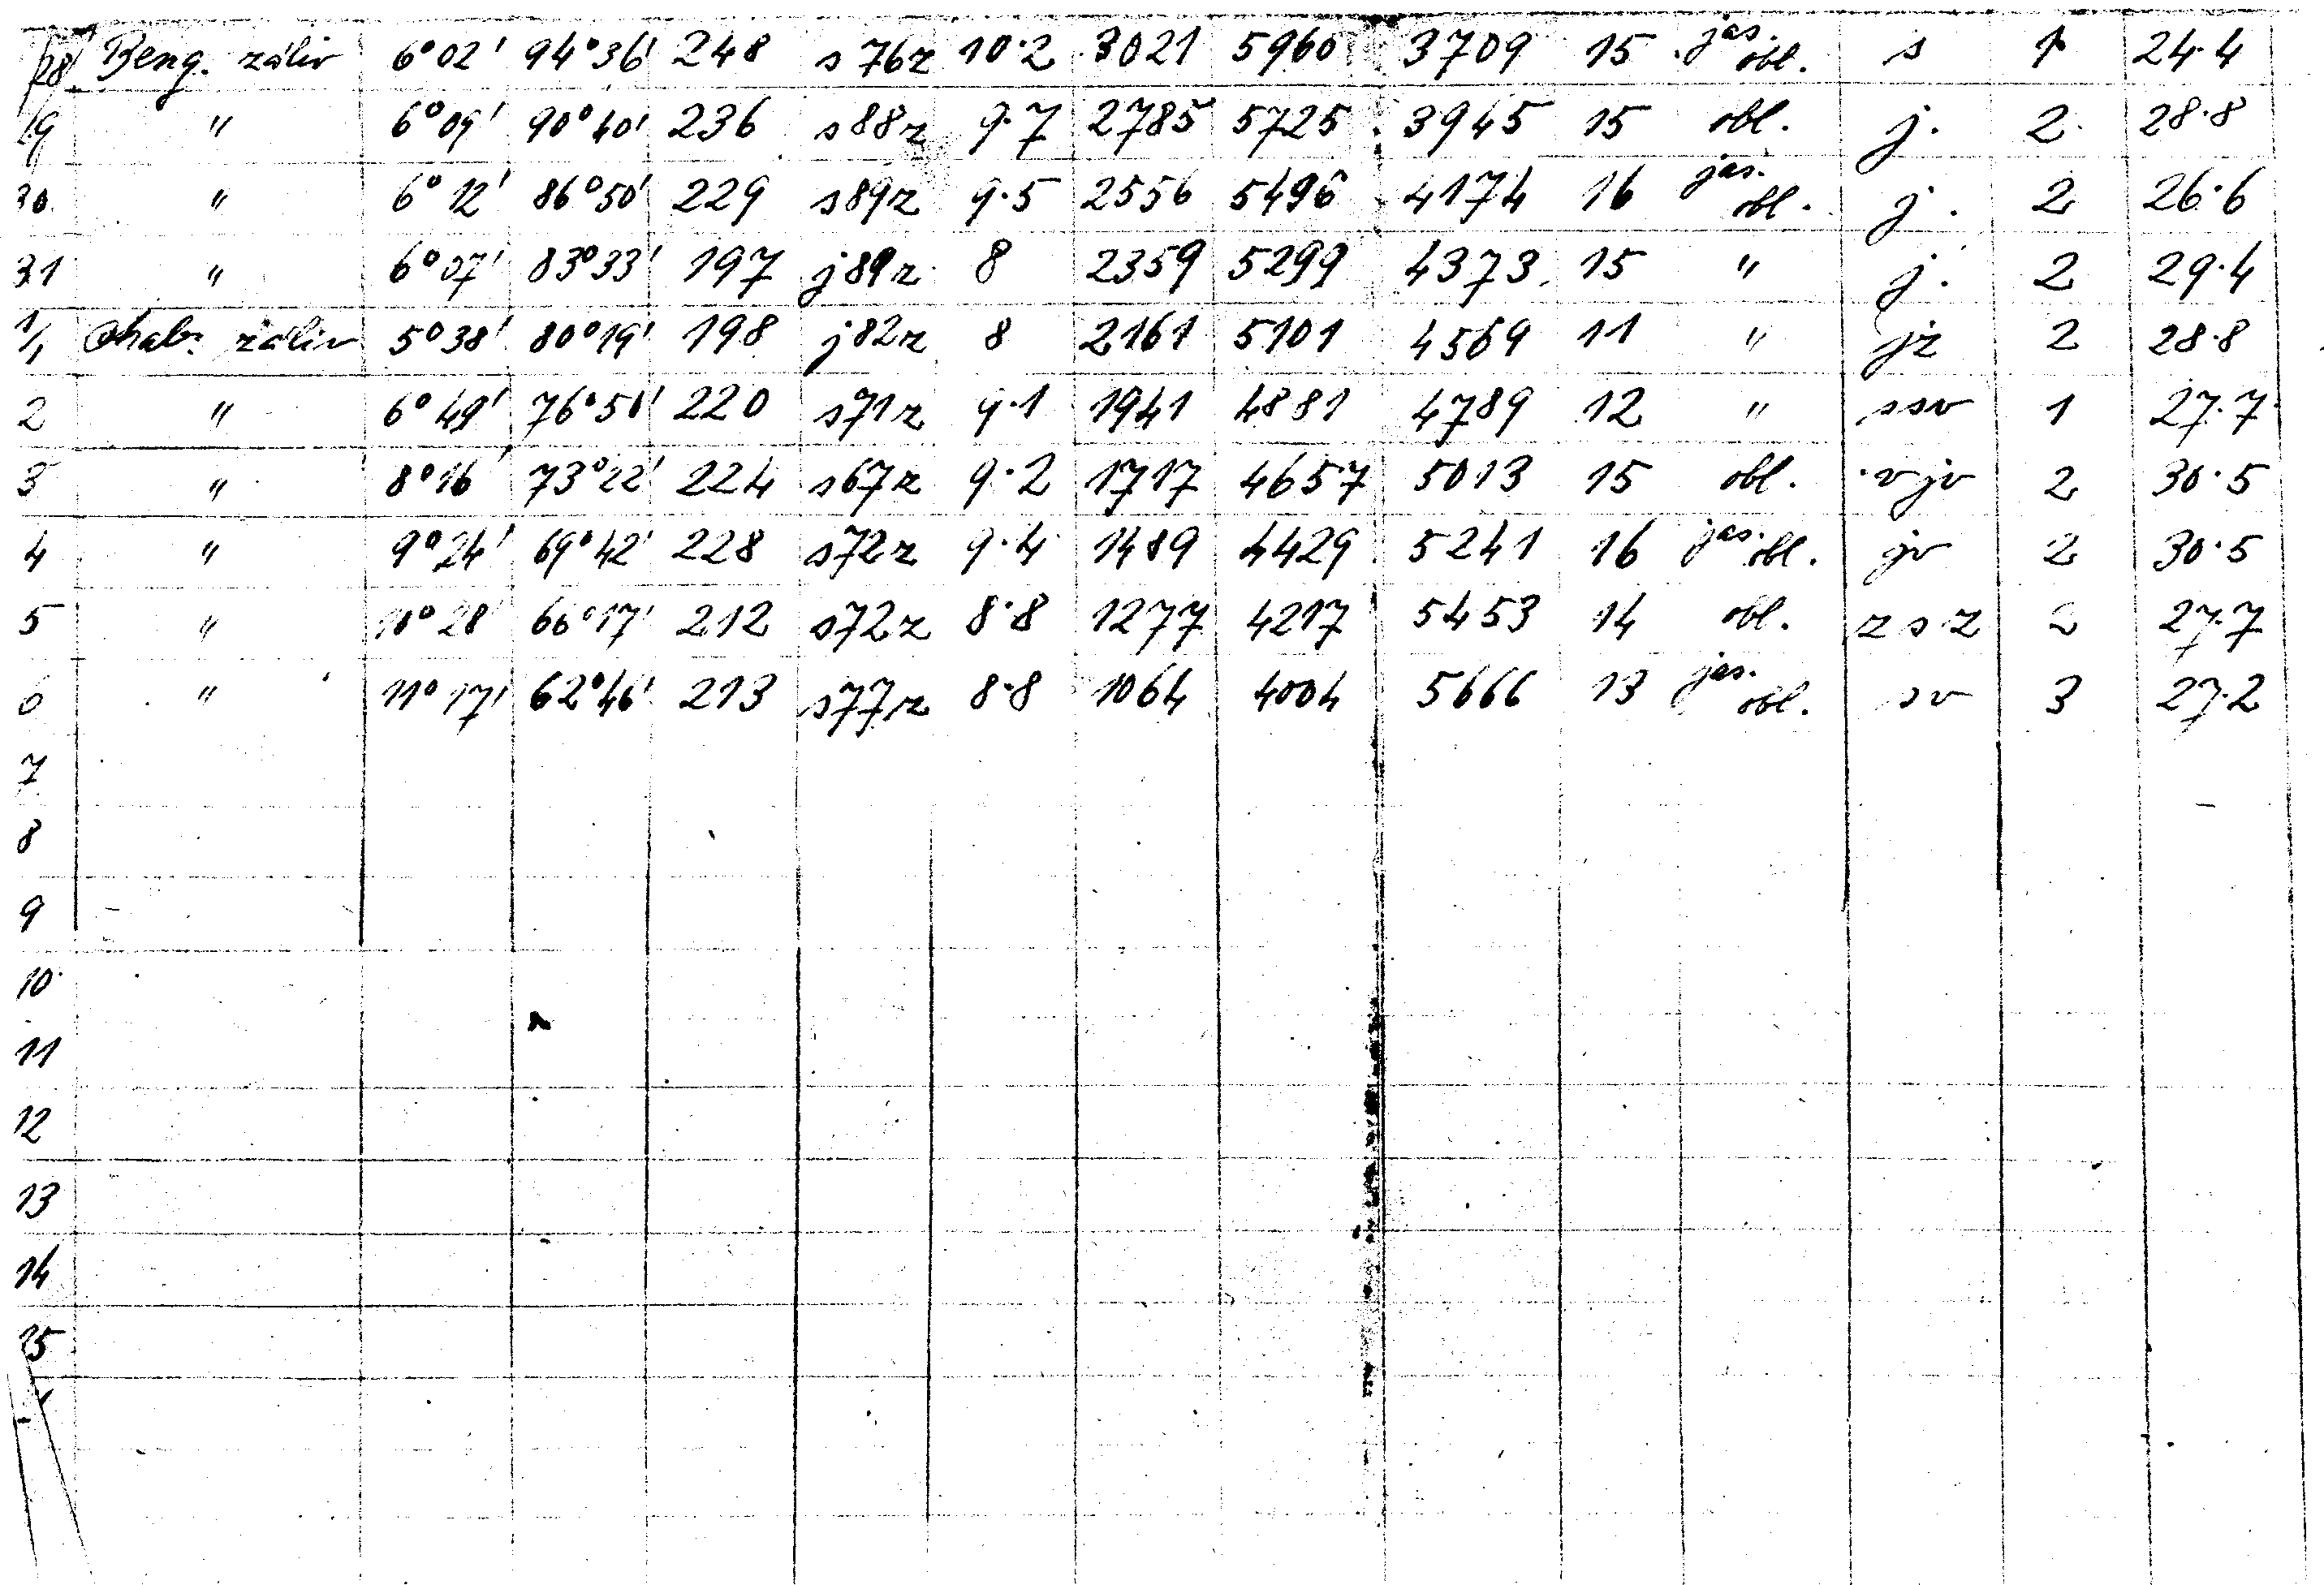 28 Beng. záliv 6°02' 94°36' 248 s76z 10·2 3021 5960 3709 15 jas. obl. s 1 24·4
29 " 6°09' 90°40' 236 s88z 9·7 2785 5725 3945 15 obl. j. 2 28·8
30 " 6°12' 86°50' 229 s89z 9·5 2556 5496 4174 16 jas. obl. j. 2 26·6
31 " 6°07' 83°33' 197 j89z 8 2359 5299 4373 15 " j. 2 29·4
1/1 Arab. záliv 5°38' 80°19' 198 j82z 8 2161 5101 4569 11 " jz 2 28·8
2 " 6°49' 76°50' 220 s71z 9·1 1941 4881 4789 12 " ssv 1 27·7
3 " 8°16' 73°22' 224 s67z 9·2 1717 4657 5013 15 obl. vjv 2 30·5
4 " 9°24' 69°42' 228 s72z 9·4 1489 4429 5241 16 jas. obl. jv 2 30·5
5 " 10°28' 66°17' 212 s72z 8·8 1277 4217 5453 14 obl. zsz 2 27·7
6 " 11°17' 62°46' 213 s77z 8·8 1064 4004 5666 13 jas. obl. sv 3 27·2
7
8
9
10
11
12
13
14
15